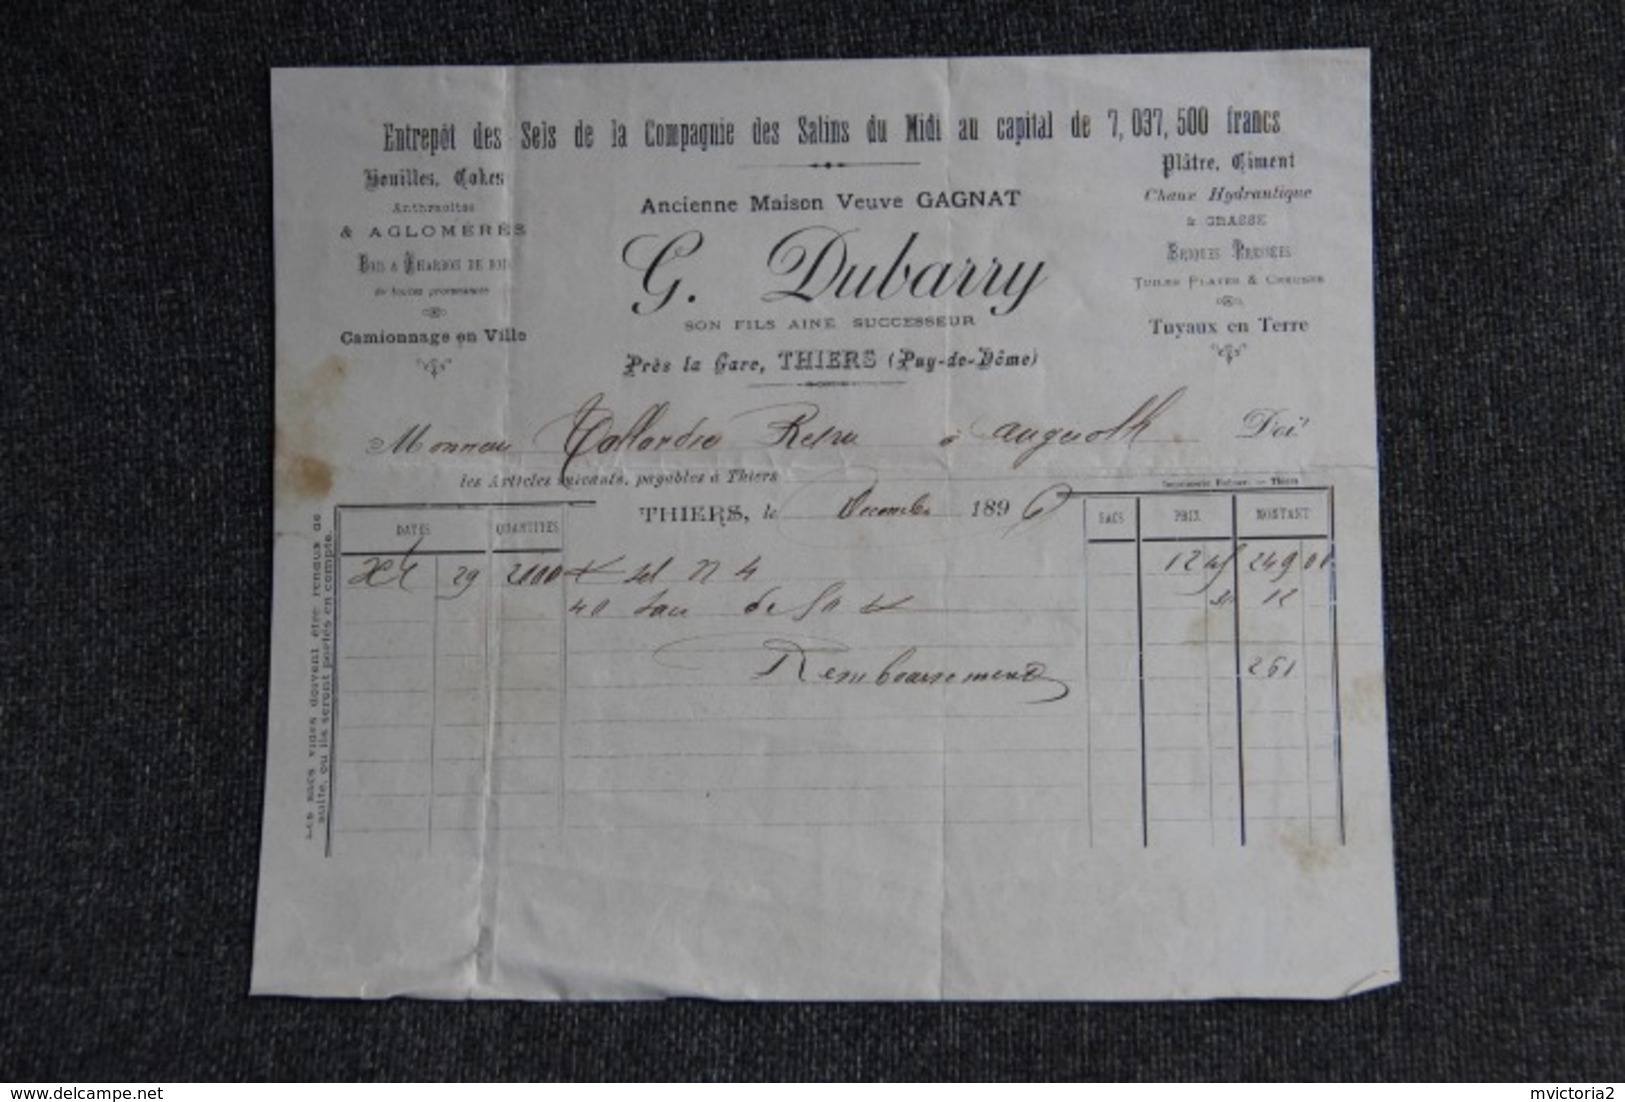 Entrepôt des Sels de la Compagnie des Salins du Midi au capital de 7,037,500 francs
Houilles, Cokes
Anthracites
& AGLOMÉRÉS
BOIS & CHARBON DE BOIS
de toutes provenances
Camionnage en Ville
Ancienne Maison Veuve GAGNAT
G. Dubarry
SON FILS AINÉ SUCCESSEUR
Près la Gare, THIERS (Puy-de-Dôme)
Plâtre, Ciment
Chaux Hydraulique
& GRASSE
BRIQUES PRESSÉES
TUILES PLATES & CREUSES
Tuyaux en Terre
à Doit
les Articles suivants, payables à Thiers
THIERS, le Décembre 1896
— Thiers
DATES QUANTITÉS SACS PRIX MONTANT
29 2000 K sel n 4 12 45 249 01
40 sacs de 50 K 12
Remboursement 261
Les sacs vides doivent être rendus de
suite, ou ils seront portés en compte.
delcampe.net
mvictoria2